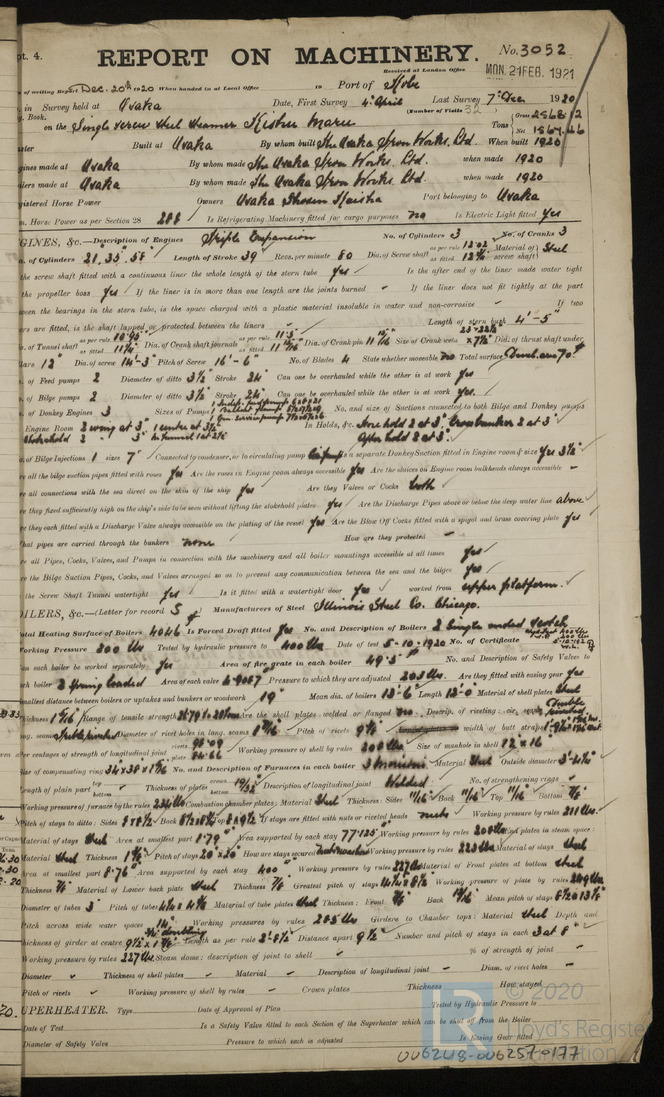 pt. 4.
REPORT ON MACHINERY. No. 3052
Received at London Office MON. 21 FEB. 1921
of writing Report Dec. 20th 1920 When handed in at Local Office 19 Port of Kobe
in Survey held at Osaka Date, First Survey 4th April Last Survey 7th Dec 1920
Book. (Number of Visits 32)
on the Single screw steel steamer Kishu Maru Tons Gross 2568.12 Net 1564.46
Built at Osaka By whom built The Osaka Iron Works, Ltd. When built 1920
gines made at Osaka By whom made The Osaka Iron Works. Ltd. when made 1920
ilers made at Osaka By whom made The Osaka Iron Works. Ltd. when made 1920
gistered Horse Power Owners Osaka Shosen Kaisha Port belonging to Osaka
m. Horse Power as per Section 28 288 Is Refrigerating Machinery fitted for cargo purposes no Is Electric Light fitted Yes
GINES, &c.—Description of Engines Triple Expansion No. of Cylinders 3 No. of Cranks 3
of Cylinders 21, 35, 58" Length of Stroke 39 Revs. per minute 80 Dia. of Screw shaft as per rule 12.02 as fitted Material of screw shaft Steel
the screw shaft fitted with a continuous liner the whole length of the stern tube yes Is the after end of the liner made water tight
the propeller boss yes If the liner is in more than one length are the joints burned If the liner does not fit tightly at the part
ween the bearings in the stern tube, is the space charged with a plastic material insoluble in water and non-corrosive If two
ers are fitted, is the shaft lapped or protected between the liners Length of stern bush 4'-5"
of Tunnel shaft as per rule 10.95" as fitted 11¼" Dia. of Crank shaft journals as per rule 11.5" as fitted 11 11/16" Dia. of Crank pin 11 11/16" Size of Crank webs Dia. of thrust shaft under
lars 12" Dia. of screw 14'-3" Pitch of Screw 16'-6" No. of Blades 4 State whether moveable no Total surface
of Feed pumps 2 Diameter of ditto 3½" Stroke 24" Can one be overhauled while the other is at work yes
of Bilge pumps 2 Diameter of ditto 3½" Stroke 24" Can one be overhauled while the other is at work yes.
of Donkey Engines 3 Sizes of Pumps No. and size of Suctions connected to both Bilge and Donkey pumps
Engine Room 2 wing at 3" 1 center at 3½" In Holds, &c. Fore hold 2 at 3", Cross bunker 2 at 3"
Stokehold 2 " 3" In Tunnel 1 at 2½" After hold 2 at 3".
of Bilge Injections 1 sizes 7" Connected to condenser, or to circulating pump Cir. pump Is a separate Donkey Suction fitted in Engine room & size Yes 3½"
re all the bilge suction pipes fitted with roses Yes Are the roses in Engine room always accessible Yes Are the sluices on Engine room bulkheads always accessible
re all connections with the sea direct on the skin of the ship yes Are they Valves or Cocks both
re they fixed sufficiently high on the ship's side to be seen without lifting the stokehold plates yes Are the Discharge Pipes above or below the deep water line above
re they each fitted with a Discharge Valve always accessible on the plating of the vessel yes Are the Blow Off Cocks fitted with a spigot and brass covering plate yes
hat pipes are carried through the bunkers none How are they protected
re all Pipes, Cocks, Valves, and Pumps in connection with the machinery and all boiler mountings accessible at all times yes
re the Bilge Suction Pipes, Cocks, and Valves arranged so as to prevent any communication between the sea and the bilges yes
the Screw Shaft Tunnel watertight yes Is it fitted with a watertight door yes worked from upper platform.
OILERS, &c.—(Letter for record S) Manufacturers of Steel Illinois Steel Co. Chicago.
otal Heating Surface of Boilers 4046 Is Forced Draft fitted Yes No. and Description of Boilers 2 Single ended Scotch
orking Pressure 200 lbs Tested by hydraulic pressure to 400 lbs Date of test 5-10-1920 No. of Certificate
an each boiler be worked separately yes Area of fire grate in each boiler 49.5 No. and Description of Safety Valves to
ch boiler 2 Spring loaded Area of each valve 4.9087 Pressure to which they are adjusted 203 lbs. Are they fitted with easing gear yes
mallest distance between boilers or uptakes and bunkers or woodwork 19" Mean dia. of boilers 13'-6" Length 12'-0" Material of shell plates Steel
hickness 1 9/16" Range of tensile strength Are the shell plates welded or flanged no Descrip. of riveting: cir. seams
ng. seams Diameter of rivet holes in long. seams Pitch of rivets width of butt straps
er centages of strength of longitudinal joint Working pressure of shell by rules 208 lbs Size of manhole in shell 12 x 16
ize of compensating ring No. and Description of Furnaces in each boiler 3 Morison Material Steel Outside diameter
ength of plain part Thickness of plates Description of longitudinal joint Welded No. of strengthening rings
Working pressure of furnace by the rules Combustion chamber plates: Material Steel Thickness: Sides 11/16 Back 11/16" Top 11/16" Bottom 7/8"
Pitch of stays to ditto: Sides Back Top If stays are fitted with nuts or riveted heads nuts Working pressure by rules 211 lbs.
Material of stays Steel Area at smallest part 1.79 Area supported by each stay 77.125 Working pressure by rules End plates in steam space:
Material Steel Thickness Pitch of stays 20" x 20" How are stays secured Working pressure by rules 223 lbs Material of stays Steel
Area at smallest part 8.76 Area supported by each stay 400 Working pressure by rules 227 lbs Material of Front plates at bottom Steel
Thickness 7/8" Material of Lower back plate Steel Thickness 7/8" Greatest pitch of stays Working pressure of plate by rules
Diameter of tubes 3" Pitch of tubes Material of tube plates Steel Thickness: Front Back Mean pitch of stays
Pitch across wide water spaces 14" Working pressures by rules Girders to Chamber tops: Material Steel Depth and
thickness of girder at centre Length as per rule 2'-8½" Distance apart 9½" Number and pitch of stays in each 3 at 8"
Working pressure by rules 227 lbs Steam dome: description of joint to shell % of strength of joint
Diameter Thickness of shell plates Material Description of longitudinal joint Diam. of rivet holes
Pitch of rivets Working pressure of shell by rules Crown plates Thickness How stayed
UPERHEATER. Type Date of Approval of Plan Tested by Hydraulic Pressure to
Date of Test Is a Safety Valve fitted to each Section of the Superheater which can be shut off from the Boiler
Diameter of Safety Valve Pressure to which each is adjusted Is Easing Gear fitted
© 2020
Lloyd's Register
Foundation
006248-006257-0177